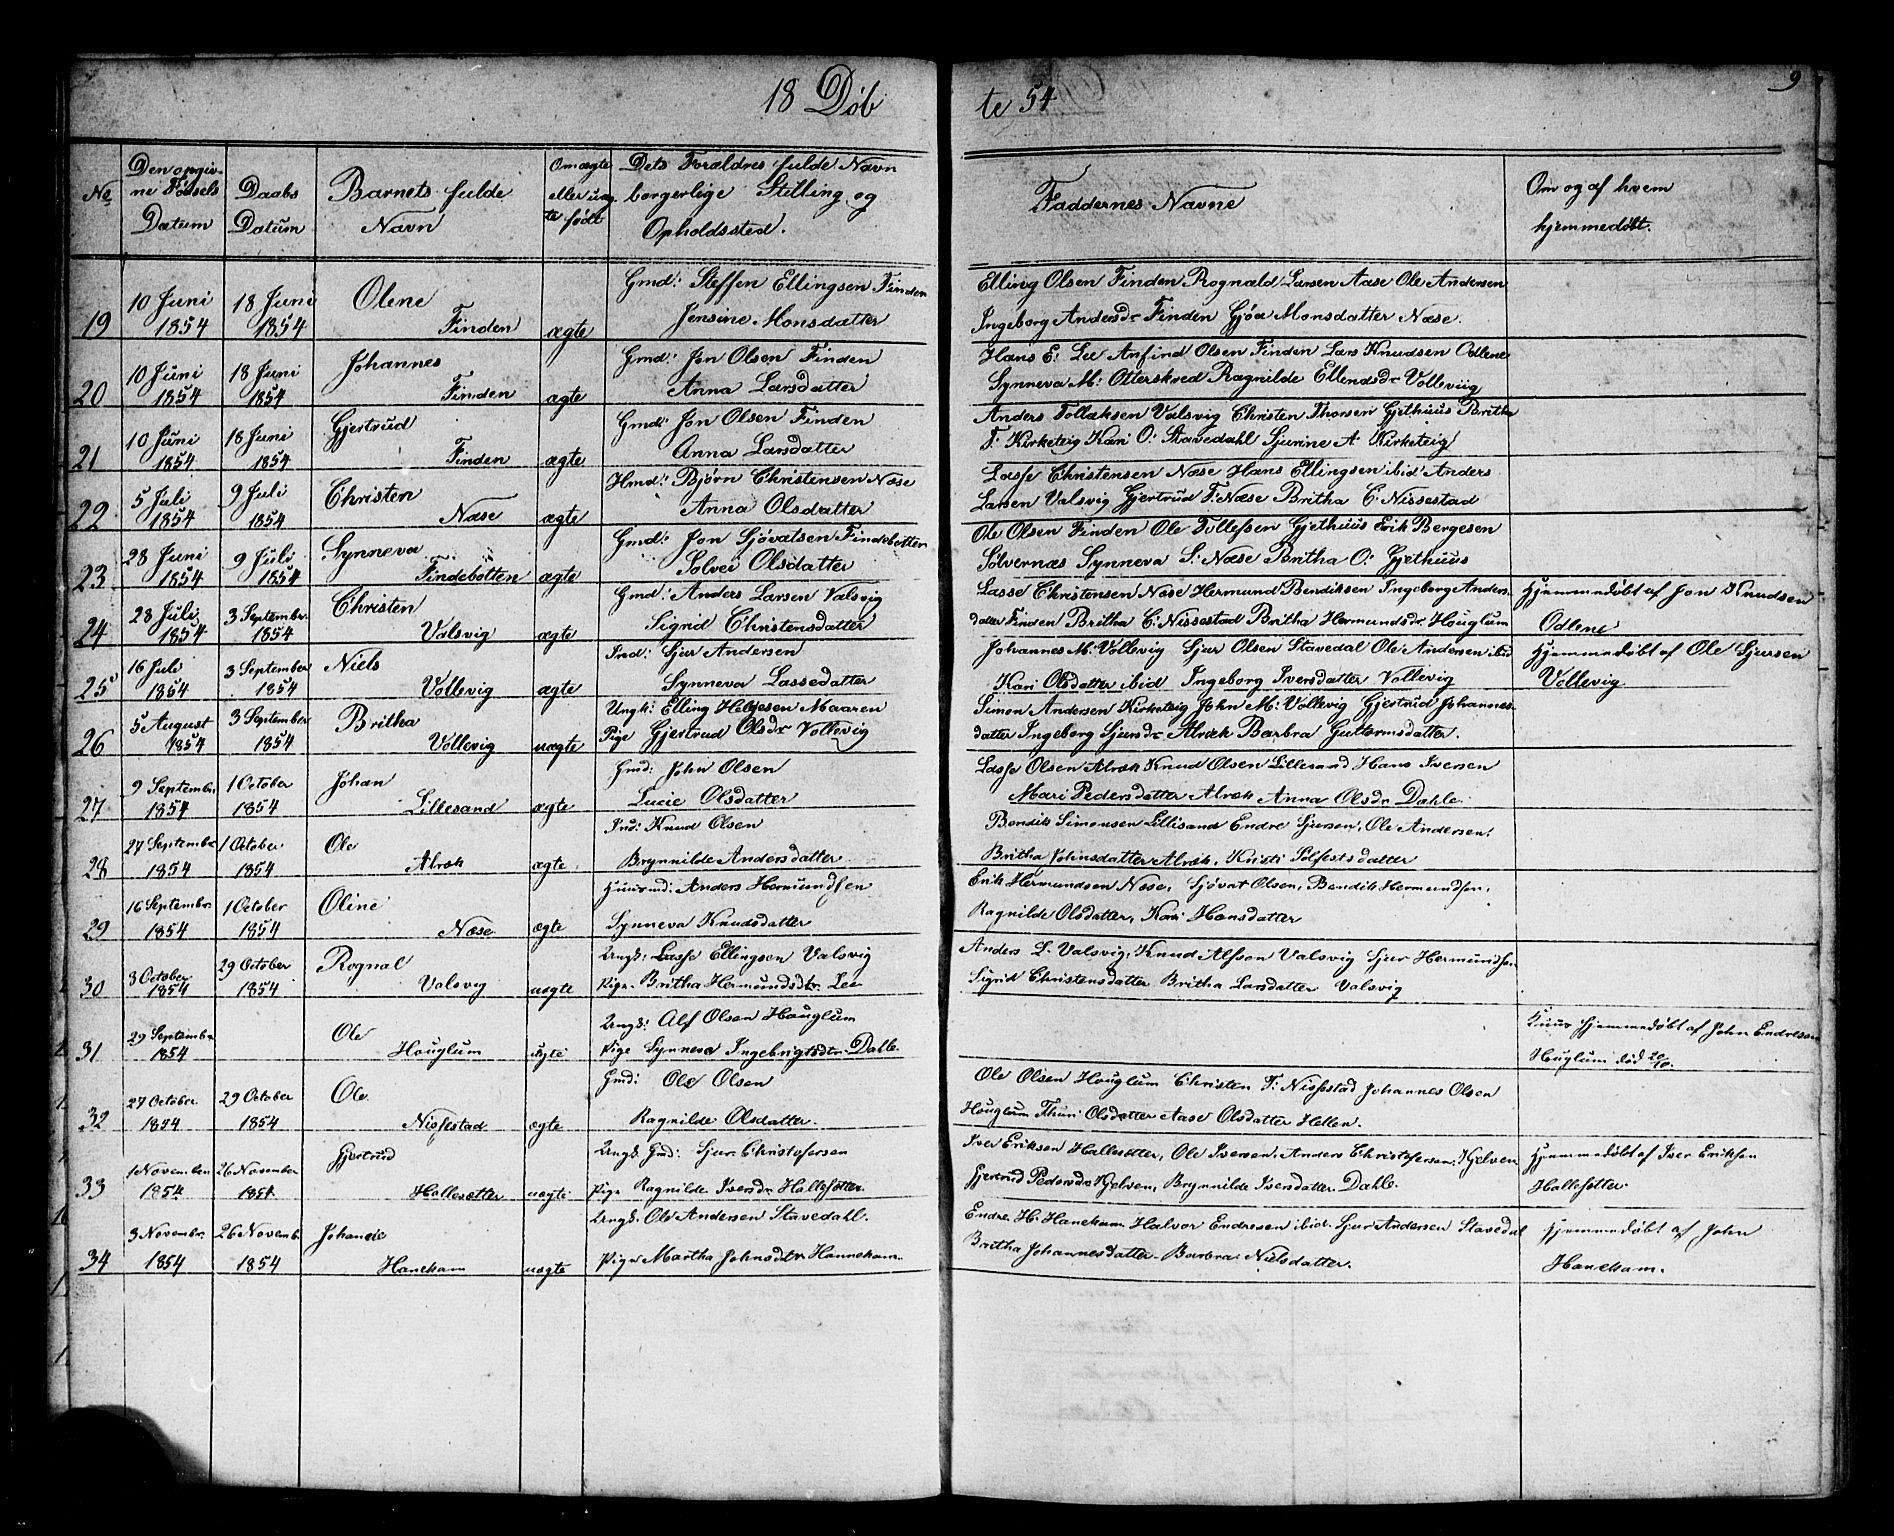 18 Døb
te 54
9
No
Den opgiv-
ne Fødsels
Datum
Daabs
Datum
Barnets fulde
Navn
Om ægte
eller uæg-
te født
Dets Forældres fulde Navn
borgerlige Stilling og
Opholdssted.
Faddernes Navne
Om og af hvem
hjemmedøbt.
19 10 Juni 1854 18 Juni 1854 Olene Finden ægte
Gmd: Steffen Ellingsen Finden
Jensine Monsdatter
Elling Olsen Finden Rognald Larsen Aase Ole Andersen
Ingeborg Andersdr Finden Gjøa Monsdatter Næse.
20 10 Juni 1854 18 Juni 1854 Johannes Finden ægte
Gmd: Jon Olsen Finden
Anna Larsdatter
Hans E: Lee Anfind Olsen Finden Lars Knudsen Odlene
Synneva M: Otterskred Ragnilde Ellendsdr Vollevig
21 10 Juni 1854 18 Juni 1854 Gjertrud Finden ægte
Gmd: Jon Olsen Finden
Anna Larsdatter
Anders Tollaksen Valsvig Christen Thorsen Gjethuus Britha
T. Kirketeig Kari O: Stavedahl Sjurine A Kirketeig
22 5 Juli 1854 9 Juli 1854 Christen Næse ægte
Hmd: Bjørn Christensen Næse
Anna Olsdatter
Lasse Christensen Næse Hans Ellingsen ibid Anders
Larsen Valsvig Gjertrud T: Næse Britha C: Nissestad
23 28 Juni 1854 9 Juli 1854 Synneva Findebotten ægte
Gmd: Jon Sjøvatsen Findebotten
Solvei Olsdatter
Ole Olsen Finden Ole Tollefsen Gjethuus Erik Bergesen
Solvernæs Synneva S: Næse Britha O: Gjethuus
24 28 Juli 1854 3 September 1854 Christen Valsvig ægte
Gmd: Anders Larsen Valsvig
Sigrid Christensdatter
Lasse Christensen Næse Hermund Bendiksen Ingeborg Anders
datter Finden Britha C: Nissestad Britha Hermundsdr Houglum
Hjemmedøbt af Jon Knudsen
Odlene
25 16 Juli 1854 3 September 1854 Niels Vollevig ægte
Ind: Sjur Andersen
Synneva Lassedatter
Johannes M: Vollevig Sjur Olsen Stavedal Ole Andersen ibid
Kari Olsdatter ibid Ingeborg Iversdatter Vollevig
Hjemmedøbt af Ole Sjursen
Vollevig
26 5 August 1854 3 September 1854 Britha Vollevig uægte
Ungk: Elling Helgesen Maaren
Pige Gjertrud Olsdr Vollevig
Simon Andersen Kirketeig John M: Vollevig Gjertrud Johannes-
datter Ingeborg Sjursdr Alræk Barbra Guttormsdatter.
27 9 Septembr. 1854 1 October 1854 Johan Lillesand ægte
Gmd: John Olsen
Lucie Olsdatter
Lasse Olsen Alræk Knud Olsen Lillesand Hans Iversen
Mari Pedersdatter Alræk Anna Olsdr Dahle.
28 27 Septembr 1854 1 October 1854 Ole Alræk ægte
Ind: Knud Olsen
Brynnilde Andersdatter
Bendik Simonsen Lillisand Endre Sjursen, Ole Andersen.
Britha Johnsdatter Alræk, Kristi Solfestsdatter
29 16 Septembr. 1854 1 October 1854 Oline Næse ægte
Huusmd: Anders Hermundsen
Synneva Knudsdatter
Erik Hermundsen Næse, Sjøvat Olsen, Bendik Hermundsen.
Ragnilde Olsdatter, Kari Hansdatter
30 3 October 1854 29 October 1854 Rognal Valsvig uægte
Ungk: Lasse Ellingsen Valsvig
Pige. Britha Hermundsdtr. Lee
Anders L. Valsvig, Knud Alfsen Valsvig Sjur Hermundsen
Sigrid Christensdatter Britha Larsdatter Valsvig
31 29 Septembr 1854 Ole Houglum uægte
Ungk: Alf Olsen Houglum
Pige Synneva Ingebrigtsdtr. Dahle.
Kuns hjemmedøbt af John Endresen
Houglum død 20/10.
32 27 October 1854 29 October 1854 Ole Nissestad ægte
Gmd: Ole Olsen
Ragnilde Olsdatter.
Ole Olsen Houglum Christen T: Nissestad Johannes Olsen
Houglum Thuri Olsdatter Aase Olsdatter Hellen.
33 1 November 1854 26 November 1854 Gjertrud Hallesætter uægte
Ungk. Gmd: Sjur Christofersen
Pige Ragnilde Iversdr Hallesetter.
Iver Eriksen Hallesetter, Ole Iversen, Anders Christofersen Hjelven
Gjertrud Pedersdr Hjelven, Brynnilde Iversdatter Dahle.
Hjemmedøbt af Iver Eriksen
Hallesetter.
34 3 Novembr. 1854 26 Novemb. 1854 Johande Hanekam uægte
Ungk. Ole Andersen Stavedahl.
Pige Martha Johnsdtr Hannekam.
Endre H. Hanekam, Halvor Endresen ibid. Sjur Andersen Stavedal
Britha Johannesdatter. Barbra Nielsdatter.
Hjemmedøbt af John
Hanekam.